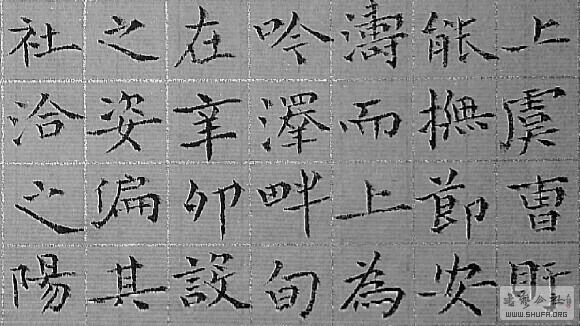 上虞曹盱
能撫節安
濤而上為
吟澤畔旬
在辛卯設
之姿偏其
社洽之陽
WWW.SHUFA.ORG